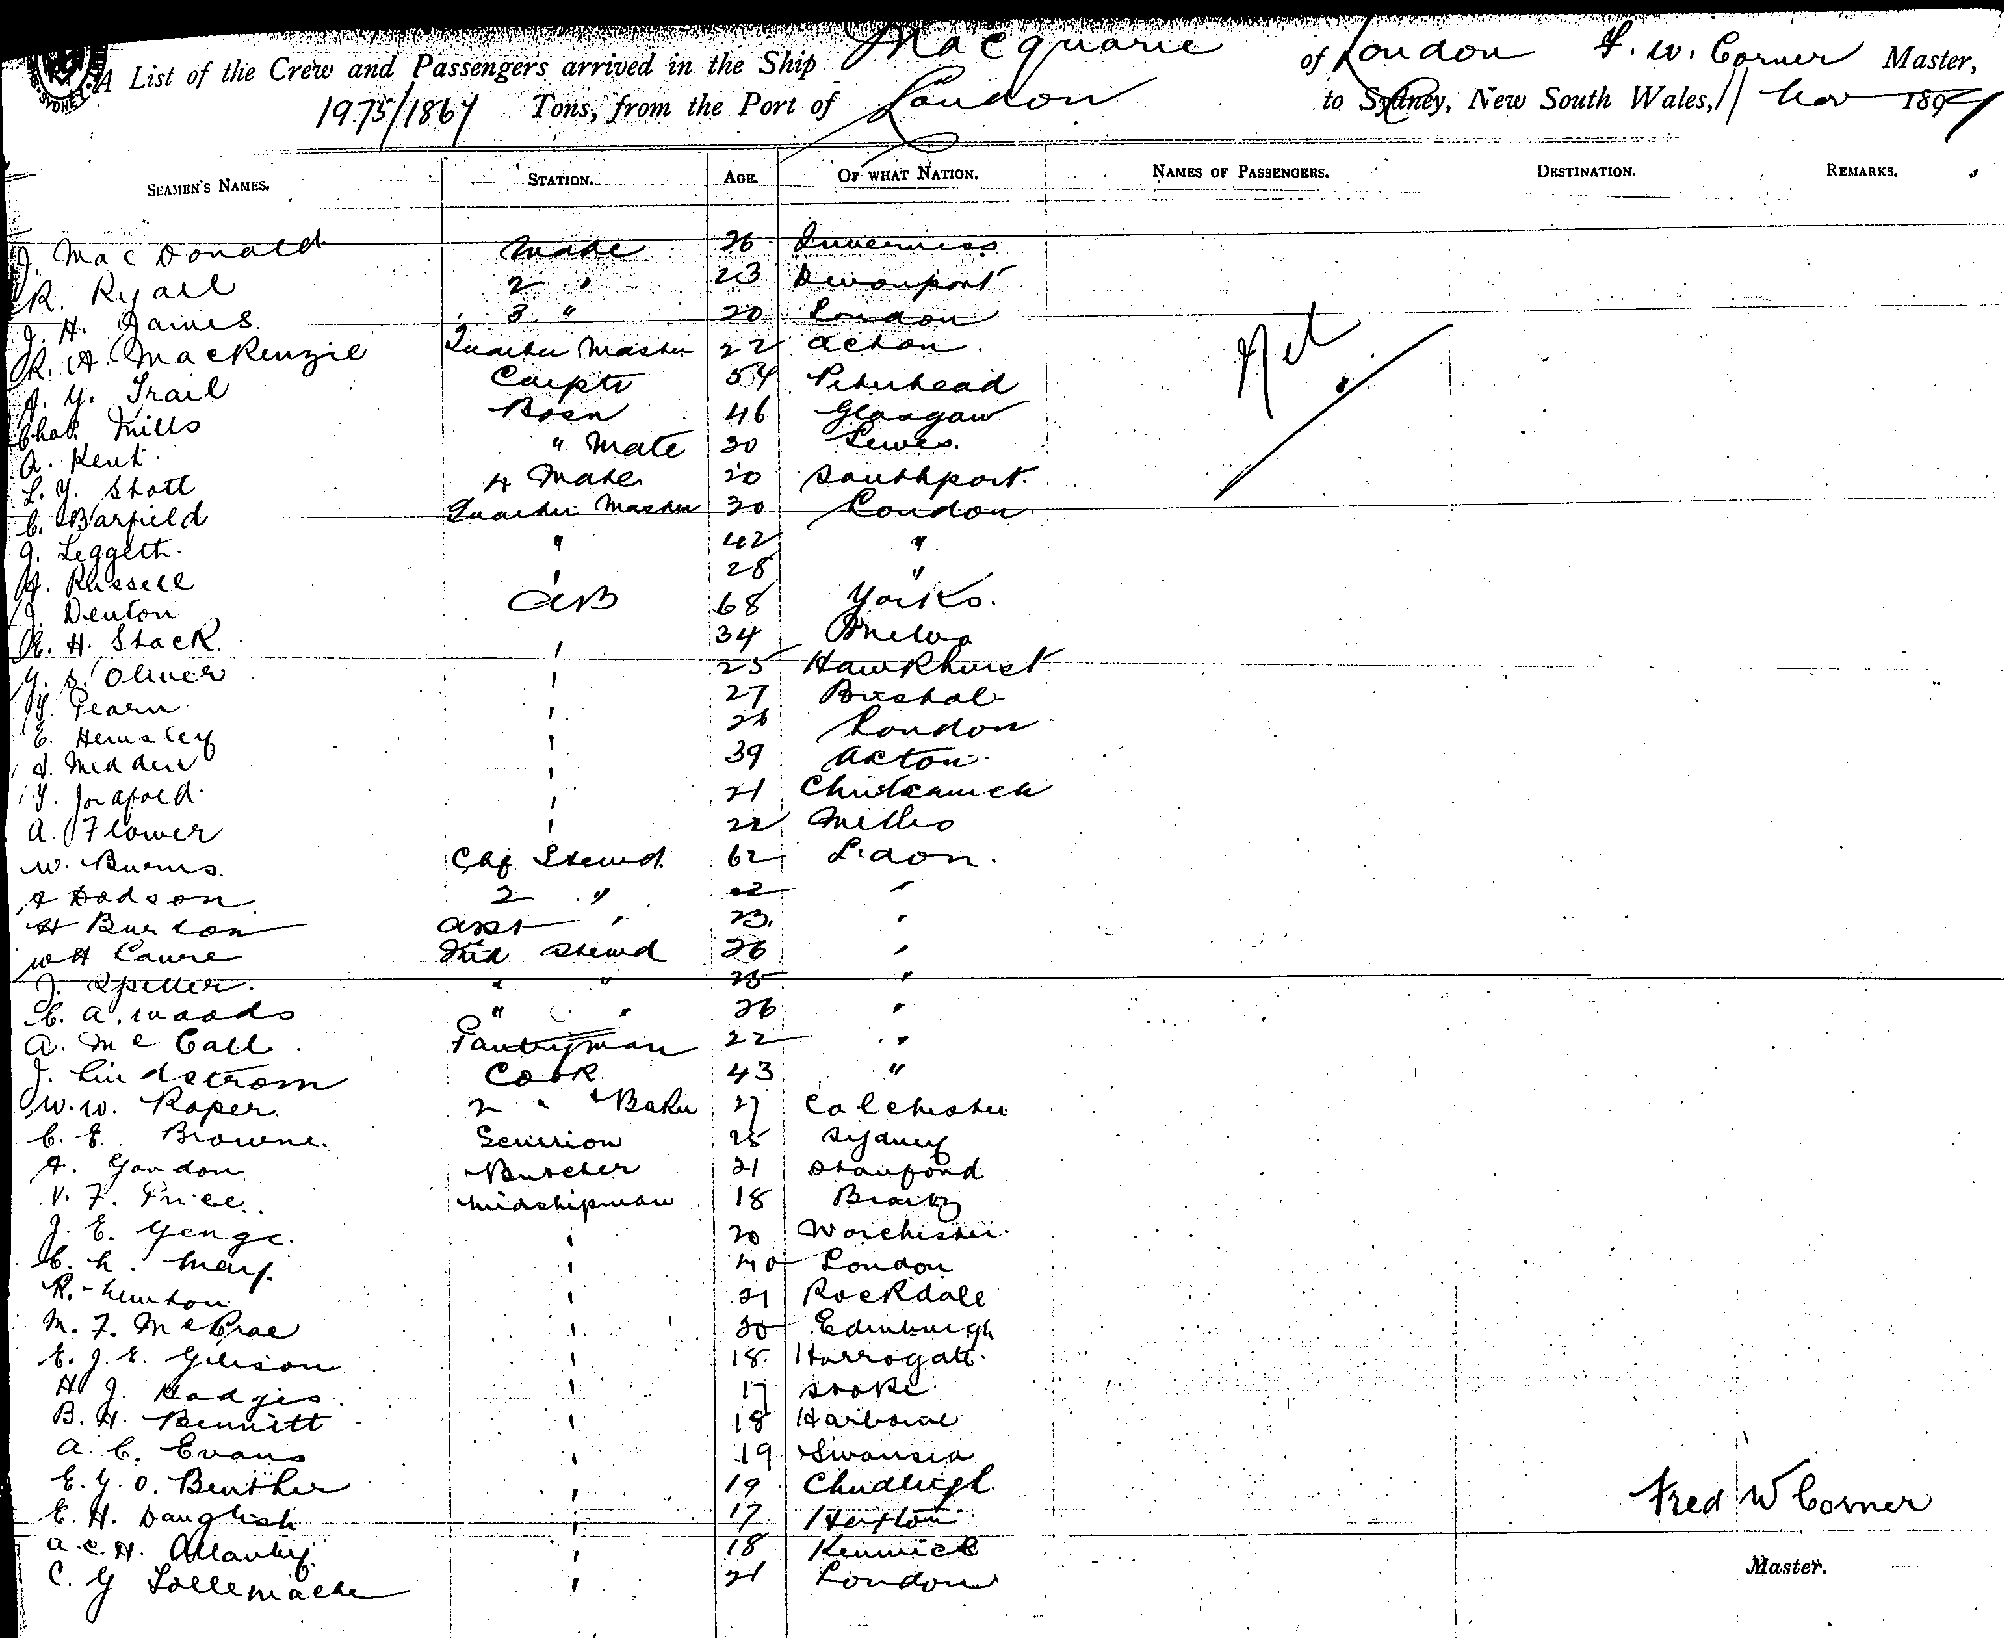 A List of the Crew and Passengers arrived in the Ship Macquarie of London F. W. Corner Master,
1975/1867 Tons, from the Port of London to Sydney, New South Wales, 11 Nov 1897
SEAMEN'S NAMES. STATION. AGE. OF WHAT NATION. NAMES OF PASSENGERS. DESTINATION. REMARKS.
J. MacDonald Mate 26 Inverness
R. Ryall 2 " 23 Devonport
J. H. James 3 " 20 London
R. A. MacKenzie Quarter Master 22 Acton
A. Y. Trail Carptr 54 Peterhead
Chas. Mills Bosn 46 Glasgow
A. Kent " Mate 30 Lewes.
L. Y. Stott 4 Mate 20 Southport.
C. Barfield Quarter Master 30 London
J. Leggett. " 42 "
Russell " 28 "
J. Denton AB 68 Yorks.
H. Stack. " 34
Oliver " 25 Hawkhurst
Pearn " 27 Bristol
E. Hemsley " London
Madden " 39 Acton.
" 21
A. Flower " 22
W. Burns. Chf Stewd. 62 L.don.
Dodson 2 " 22 "
H Burton Asst " 23. "
W H Stewd 26 "
J. Speller. " " 25 "
C. A. Woods " " 26 "
A. McCall. Pantryman 22 "
J. Lindstrom Cook 43 "
W. W. Roper. 2 " & Baker 27 Colchester
C. E. Browne. Scullion 25 Sydney
A. Gordon Butcher 21 Stamford
V. F. Price. Midshipman 18
J. E. Yonge. " 20 Worchester.
C. L. May. " London
R. Newton " 21 Rockdale
M. F. McCrae " 20 Edinburgh
E. J. E. Gibson " 18. Harrogate.
H. J. Hodges. " 17 Stoke.
B. H. Bennett " 18 Harborne
A. C. Evans " 19 Swansea
E. Y. O. Beuther " 19 Chudleigh
E. H. Daughish " 17
A. C. H. Allanby. " 18
C. Y Tollemache " 21 London
Nil
Fred W Corner
Master.